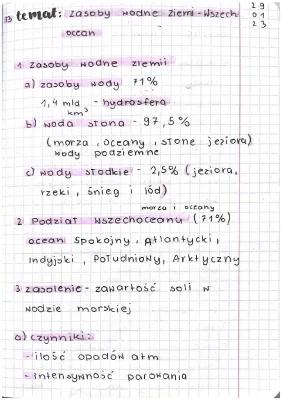 13 temat: zasoby wodne ziemi - wszech
ocean
29
01
23
1 zasoby wodne ziemii
a) zasoby wody 71%
1,4 mld km³ - hydrosfera
b) woda słona - 97,5%
(morza, oceany, słone jeziora)
wody podziemne
c) wody słodkie - 2,5% (jeziora,
rzeki, śnieg i lód)
morza i oceany
2 Podział wszechoceanu (71%)
oceani spokojny, Atlantycki,
Indyjski, Południowy, Arktyczny
3 zasolenie - zawartość soli w
wodzie morskiej
a) czynniki:
- ilość opadów atm
- intensywność parowania